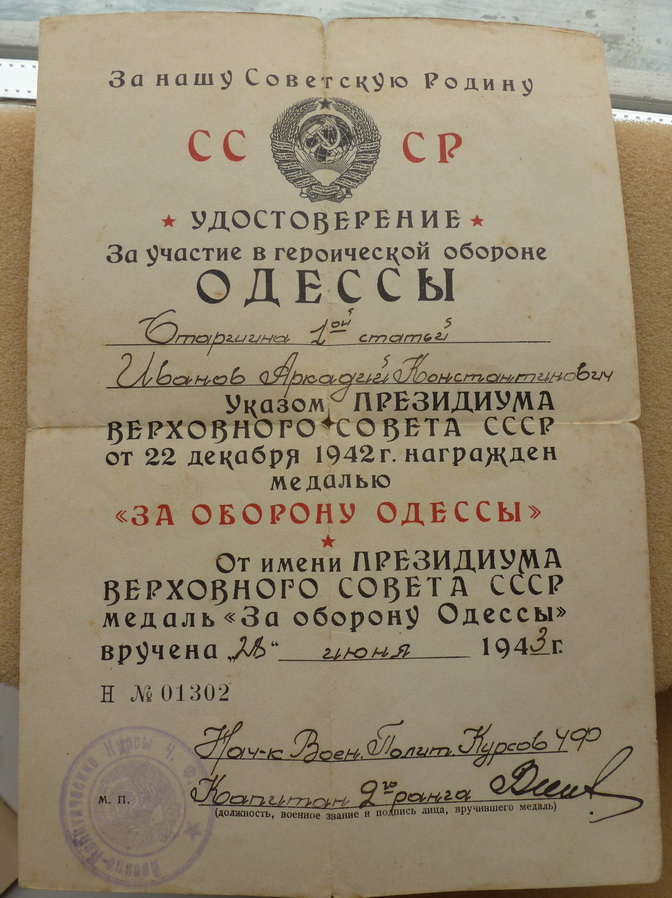 За нашу Советскую Родину
СС СР
УДОСТОВЕРЕНИЕ
За участие в героической обороне
ОДЕССЫ
Старшина 1ой статьи
Иванов Аркадий Константинович
Указом ПРЕЗИДИУМА
ВЕРХОВНОГО СОВЕТА СССР
от 22 декабря 1942г. награжден
медалью
«ЗА ОБОРОНУ ОДЕССЫ»
От имени ПРЕЗИДИУМА
ВЕРХОВНОГО СОВЕТА СССР
медаль «За оборону Одессы»
вручена „28“ июня 1943 г.
Н № 01302
Нач-к Воен. Полит. Курсов ЧФ
Капитан 2го ранга
М. П.
(должность, военное звание и подпись лица, вручившего медаль)
Военно-Политические Курсы Ч. Ф.